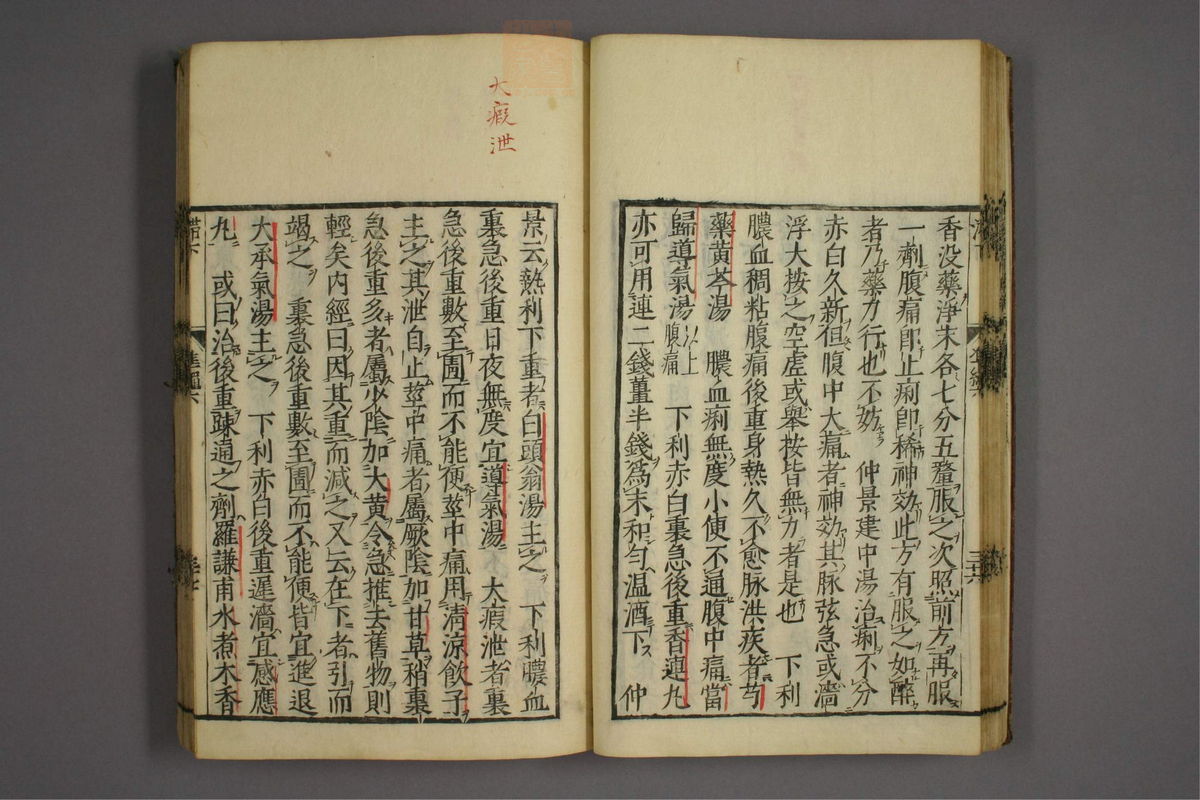 香没藥淨末各七分五釐服之次照前方再服
一劑腹痛即止痢即稀神効此方有服之如醉
者乃藥力行也不妨　仲景建中湯治痢不分
赤白久新但腹中大痛者神効其脉弦急或濇
浮大按之空虚或舉按皆無力者是也　下利
膿血稠粘腹痛後重身熱久不愈脉洪疾者芍
藥黄芩湯　膿血痢無度小便不通腹中痛當
歸導氣湯以上腹痛　下利赤白裏急後重香連丸
亦可用連二錢薑半錢爲末和勻温酒下　仲
大瘕泄
景云熱利下重者白頭翁湯主之　下利膿血
裏急後重日夜無度宜導氣湯　大瘕泄者裏
急後重數至圊而不能便莖中痛用清涼飲子
主之其泄自止莖中痛者屬厥陰加甘草稍裏
急後重多者屬少陰加大黄令急推去舊物則
輕矣内經曰因其重而減之又云在下者引而
竭之　裏急後重數至圊而不能便皆宜進退
大承氣湯主之　下利赤白後重遲濇宜感應
丸　或曰治後重疎通之劑羅謙甫水煮木香